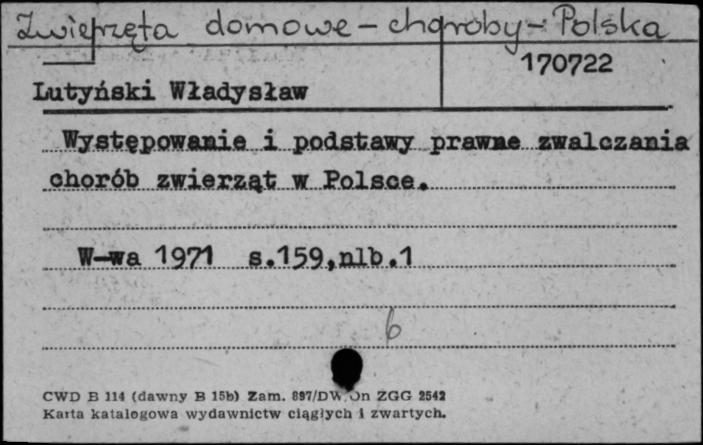 Zwierzęta domowe - choroby - Polska
170722
Lutyński Władysław
Występowanie i podstawy prawne zwalczania
chorób zwierząt w Polsce.
W-wa 1971 s.159,nlb.1
6
CWD B 114 (dawny B 15b) Zam. 897/DW/On ZGG 2542
Karta katalogowa wydawnictw ciągłych i zwartych.